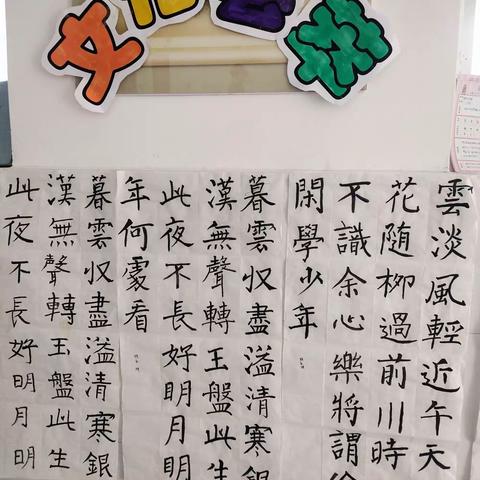 文化
雲淡風輕近午天
花随柳過前川時
不識余心樂將謂
閑學少年
暮雲収盡溢清寒銀
漢無聲轉玉盤此生
此夜不長好明月明
年何處看
暮雲収盡溢清寒銀
漢無聲轉玉盤此生
此夜不長好明月明